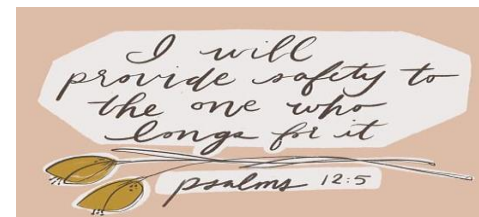 I will
provide safety to
the one who
longs for it
psalms 12:5